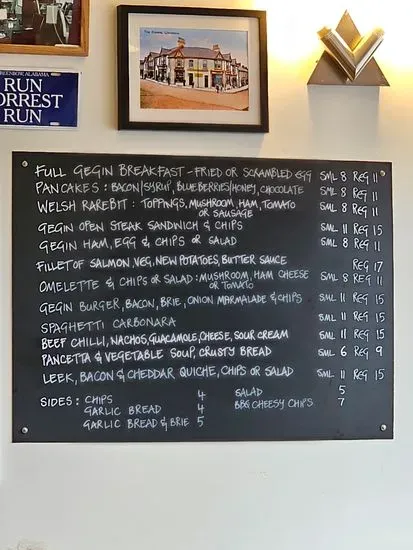 GREENBOW, ALABAMA
RUN
FORREST
RUN
FULL GEGIN BREAKFAST - FRIED OR SCRAMBLED EGG SML 8 REG 11
PANCAKES : BACON/SYRUP, BLUEBERRIES/HONEY, CHOCOLATE SML 8 REG 11
WELSH RAREBIT : TOPPINGS, MUSHROOM, HAM, TOMATO SML 8 REG 11
OR SAUSAGE
GEGIN OPEN STEAK SANDWICH & CHIPS SML 11 REG 15
GEGIN HAM, EGG & CHIPS OR SALAD SML 8 REG 11
FILLET OF SALMON, VEG, NEW POTATOES, BUTTER SAUCE REG 17
OMELETTE & CHIPS OR SALAD : MUSHROOM, HAM CHEESE SML 8 REG 11
OR TOMATO
GEGIN BURGER, BACON, BRIE, ONION MARMALADE & CHIPS SML 11 REG 15
SPAGHETTI CARBONARA SML 11 REG 15
BEEF CHILLI, NACHOS, GUACAMOLE, CHEESE, SOUR CREAM SML 11 REG 15
PANCETTA & VEGETABLE SOUP, CRUSTY BREAD SML 6 REG 9
LEEK, BACON & CHEDDAR QUICHE, CHIPS OR SALAD SML 11 REG 15
SIDES : CHIPS 4 SALAD 5
GARLIC BREAD 4 BBQ CHEESY CHIPS 7
GARLIC BREAD & BRIE 5